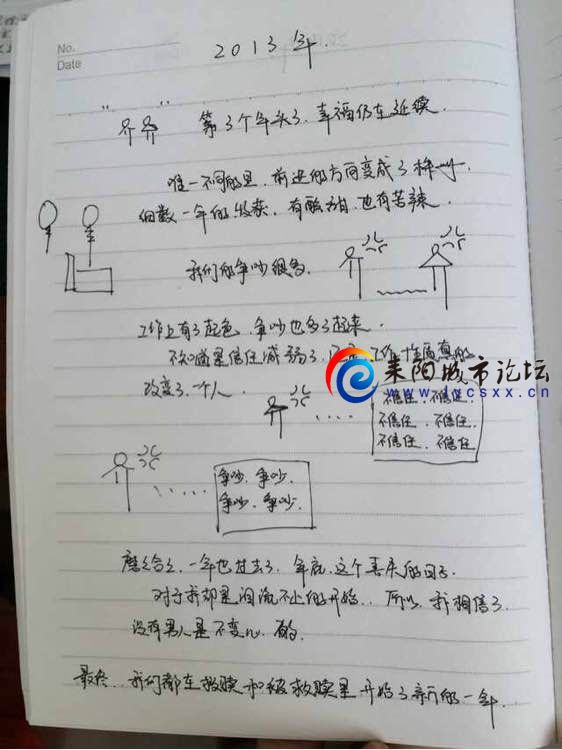 No.
Date
2013年.
"齐齐" 第3个年头了.幸福仍在延续.
唯一不同的是.前进的方向变成了两
细数一年的收获.有酸甜.也有苦辣.
我们的争吵很多.
工作上有了起色.争吵也多了起来.
不知道是信任减弱了.还是工作性质真的
改变了一个人.
不信任.不信任.
不信任.不信任.
不信任.不信任.
争吵.争吵.
争吵.争吵.
耒阳城市论坛
www.lycsxx.cn
磨磨合合.一年也过去了.年底.这个喜庆的日子.
对于我却是泪流不止的开始..所以.我相信了.
没有男人是不变心的.
最终..我们都在救赎和被救赎里开始了新的一年.